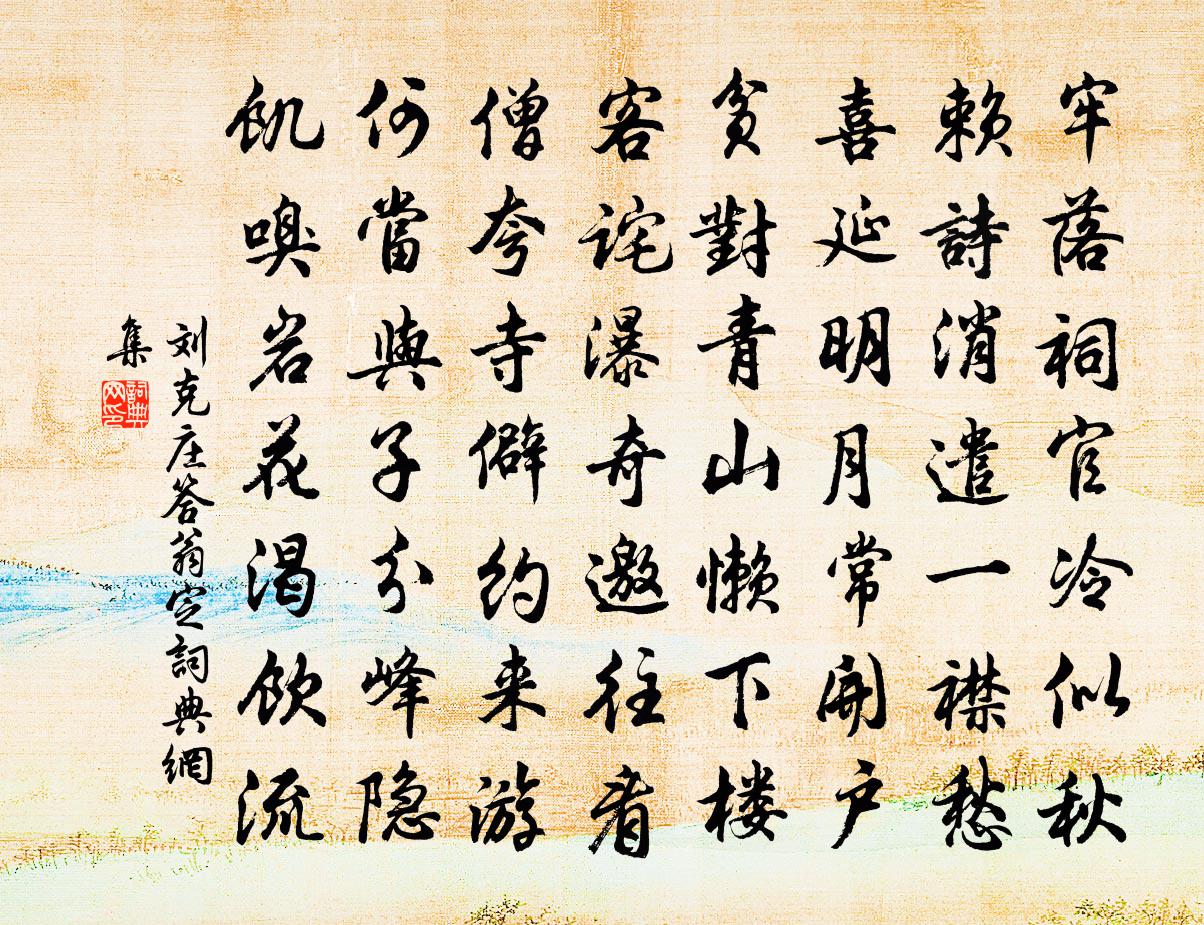 牢落祠官冷似秋
赖詩消遣一襟愁
喜延明月常開户
贫對青山懒下楼
客詫瀑奇邀往看
僧夸寺僻約来游
何當與子分峰隐
飢嗅岩花渴飲流
刘克庄答翁定詞典網
集
詞典网印